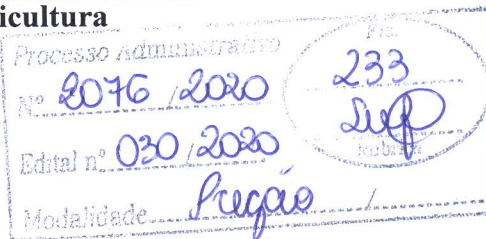 icultura
Processo Administrativo
Nº 2076 / 2020
Edital nº 030 / 2020
Modalidade Pregão /
Fls.
233
Rubrica